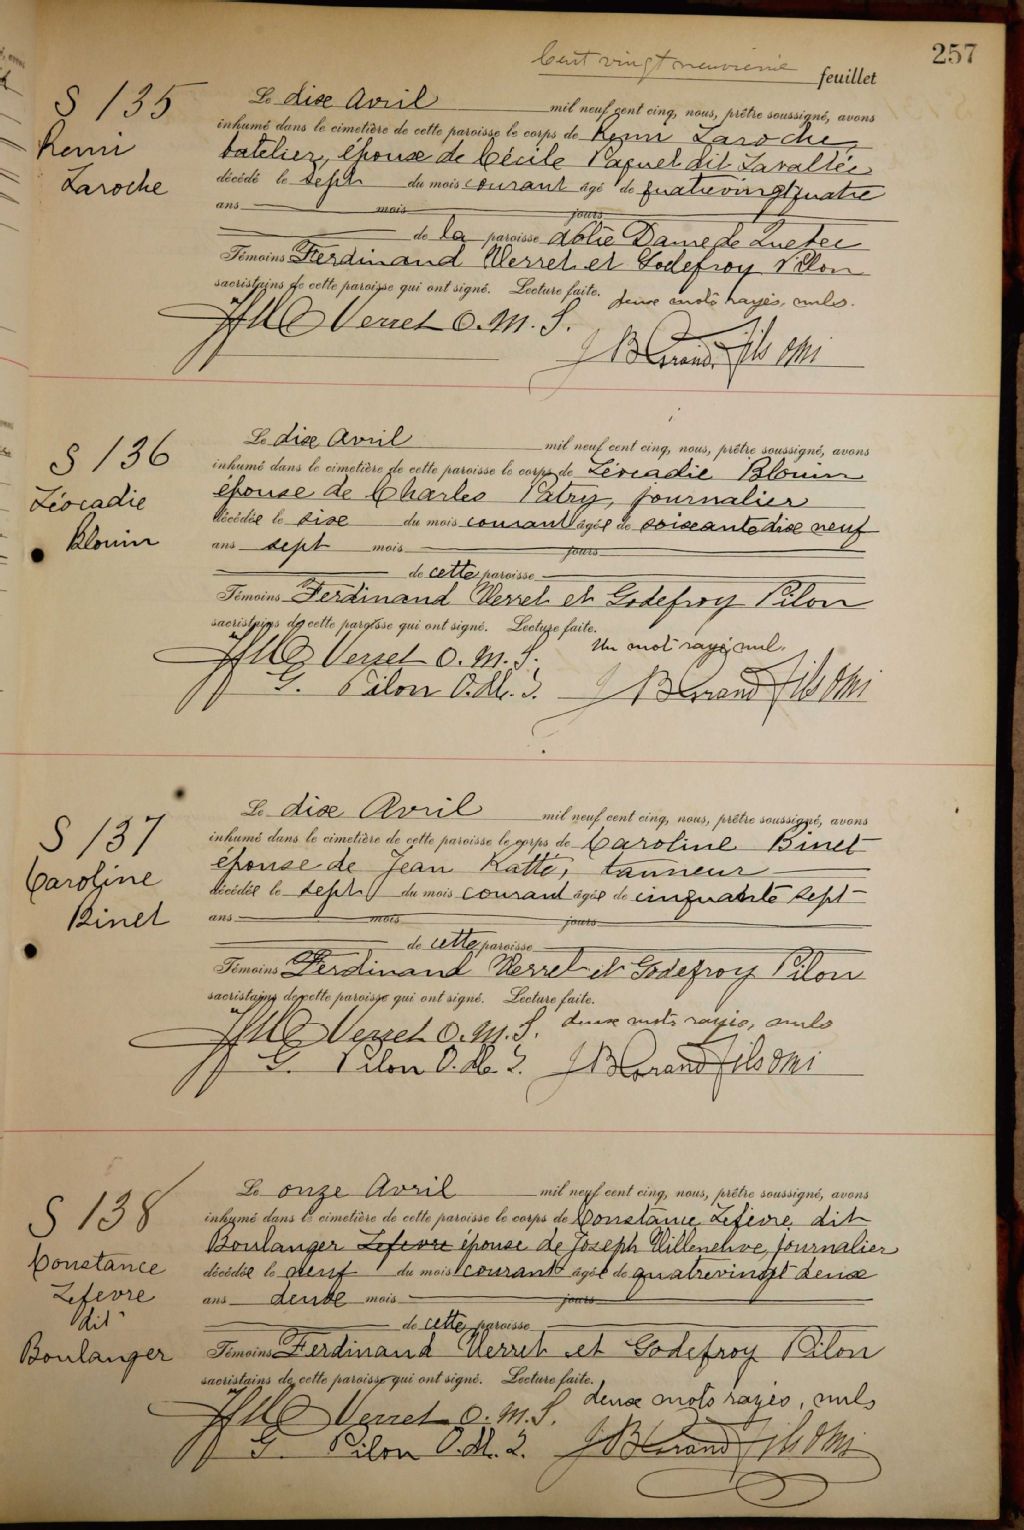 257
Cent vingt neuvième feuillet
S 135
Remi
Laroche
Le dix Avril mil neuf cent cinq, nous, prêtre soussigné, avons
inhumé dans le cimetière de cette paroisse le corps de Remi Laroche,
batelier, époux de Cécile Paquet dit Lavallée
décédé le sept du mois courant âgé de quatrevingtquatre
ans mois jours
de la paroisse de Notre Dame de Quebec
Témoins Ferdinand Verret et Godefroy Pilon
sacristains de cette paroisse qui ont signé. Lecture faite. deux mots rayés, nuls.
Verret O.M.S.
J B Grand fils omi
S 136
Léocadie
Blouin
Le dix Avril mil neuf cent cinq, nous, prêtre soussigné, avons
inhumé dans le cimetière de cette paroisse le corps de Léocadie Blouin
épouse de Charles Patry, journalier
décédée le six du mois courant âgée de soixantedix neuf
ans sept mois jours
de cette paroisse
Témoins Ferdinand Verret et Godefroy Pilon
sacristains de cette paroisse qui ont signé. Lecture faite. Un mot rayé, nul.
Verret O.M.S.
G. Pilon O.M.I. J B Grand fils omi
S 137
Caroline
Binet
Le dix Avril mil neuf cent cinq, nous, prêtre soussigné, avons
inhumé dans le cimetière de cette paroisse le corps de Caroline Binet
épouse de Jean Katté, tanneur
décédée le sept du mois courant âgée de cinquante sept
ans mois jours
de cette paroisse
Témoins Ferdinand Verret et Godefroy Pilon
sacristains de cette paroisse qui ont signé. Lecture faite.
deux mots rayés, nuls
Verret O.M.S.
G. Pilon O.M.I. J B Grand fils omi
S 138
Constance
Lefevre
dit
Boulanger
Le onze Avril mil neuf cent cinq, nous, prêtre soussigné, avons
inhumé dans le cimetière de cette paroisse le corps de Constance Lefèvre dit
Boulanger Lefevre épouse de Joseph Villeneuve, journalier
décédée le neuf du mois courant âgée de quatrevingt deux
ans deux mois jours
de cette paroisse
Témoins Ferdinand Verret et Godefroy Pilon
sacristains de cette paroisse qui ont signé. Lecture faite.
deux mots rayés, nuls
Verret O.M.S.
G. Pilon O.M.I. J B Grand fils omi